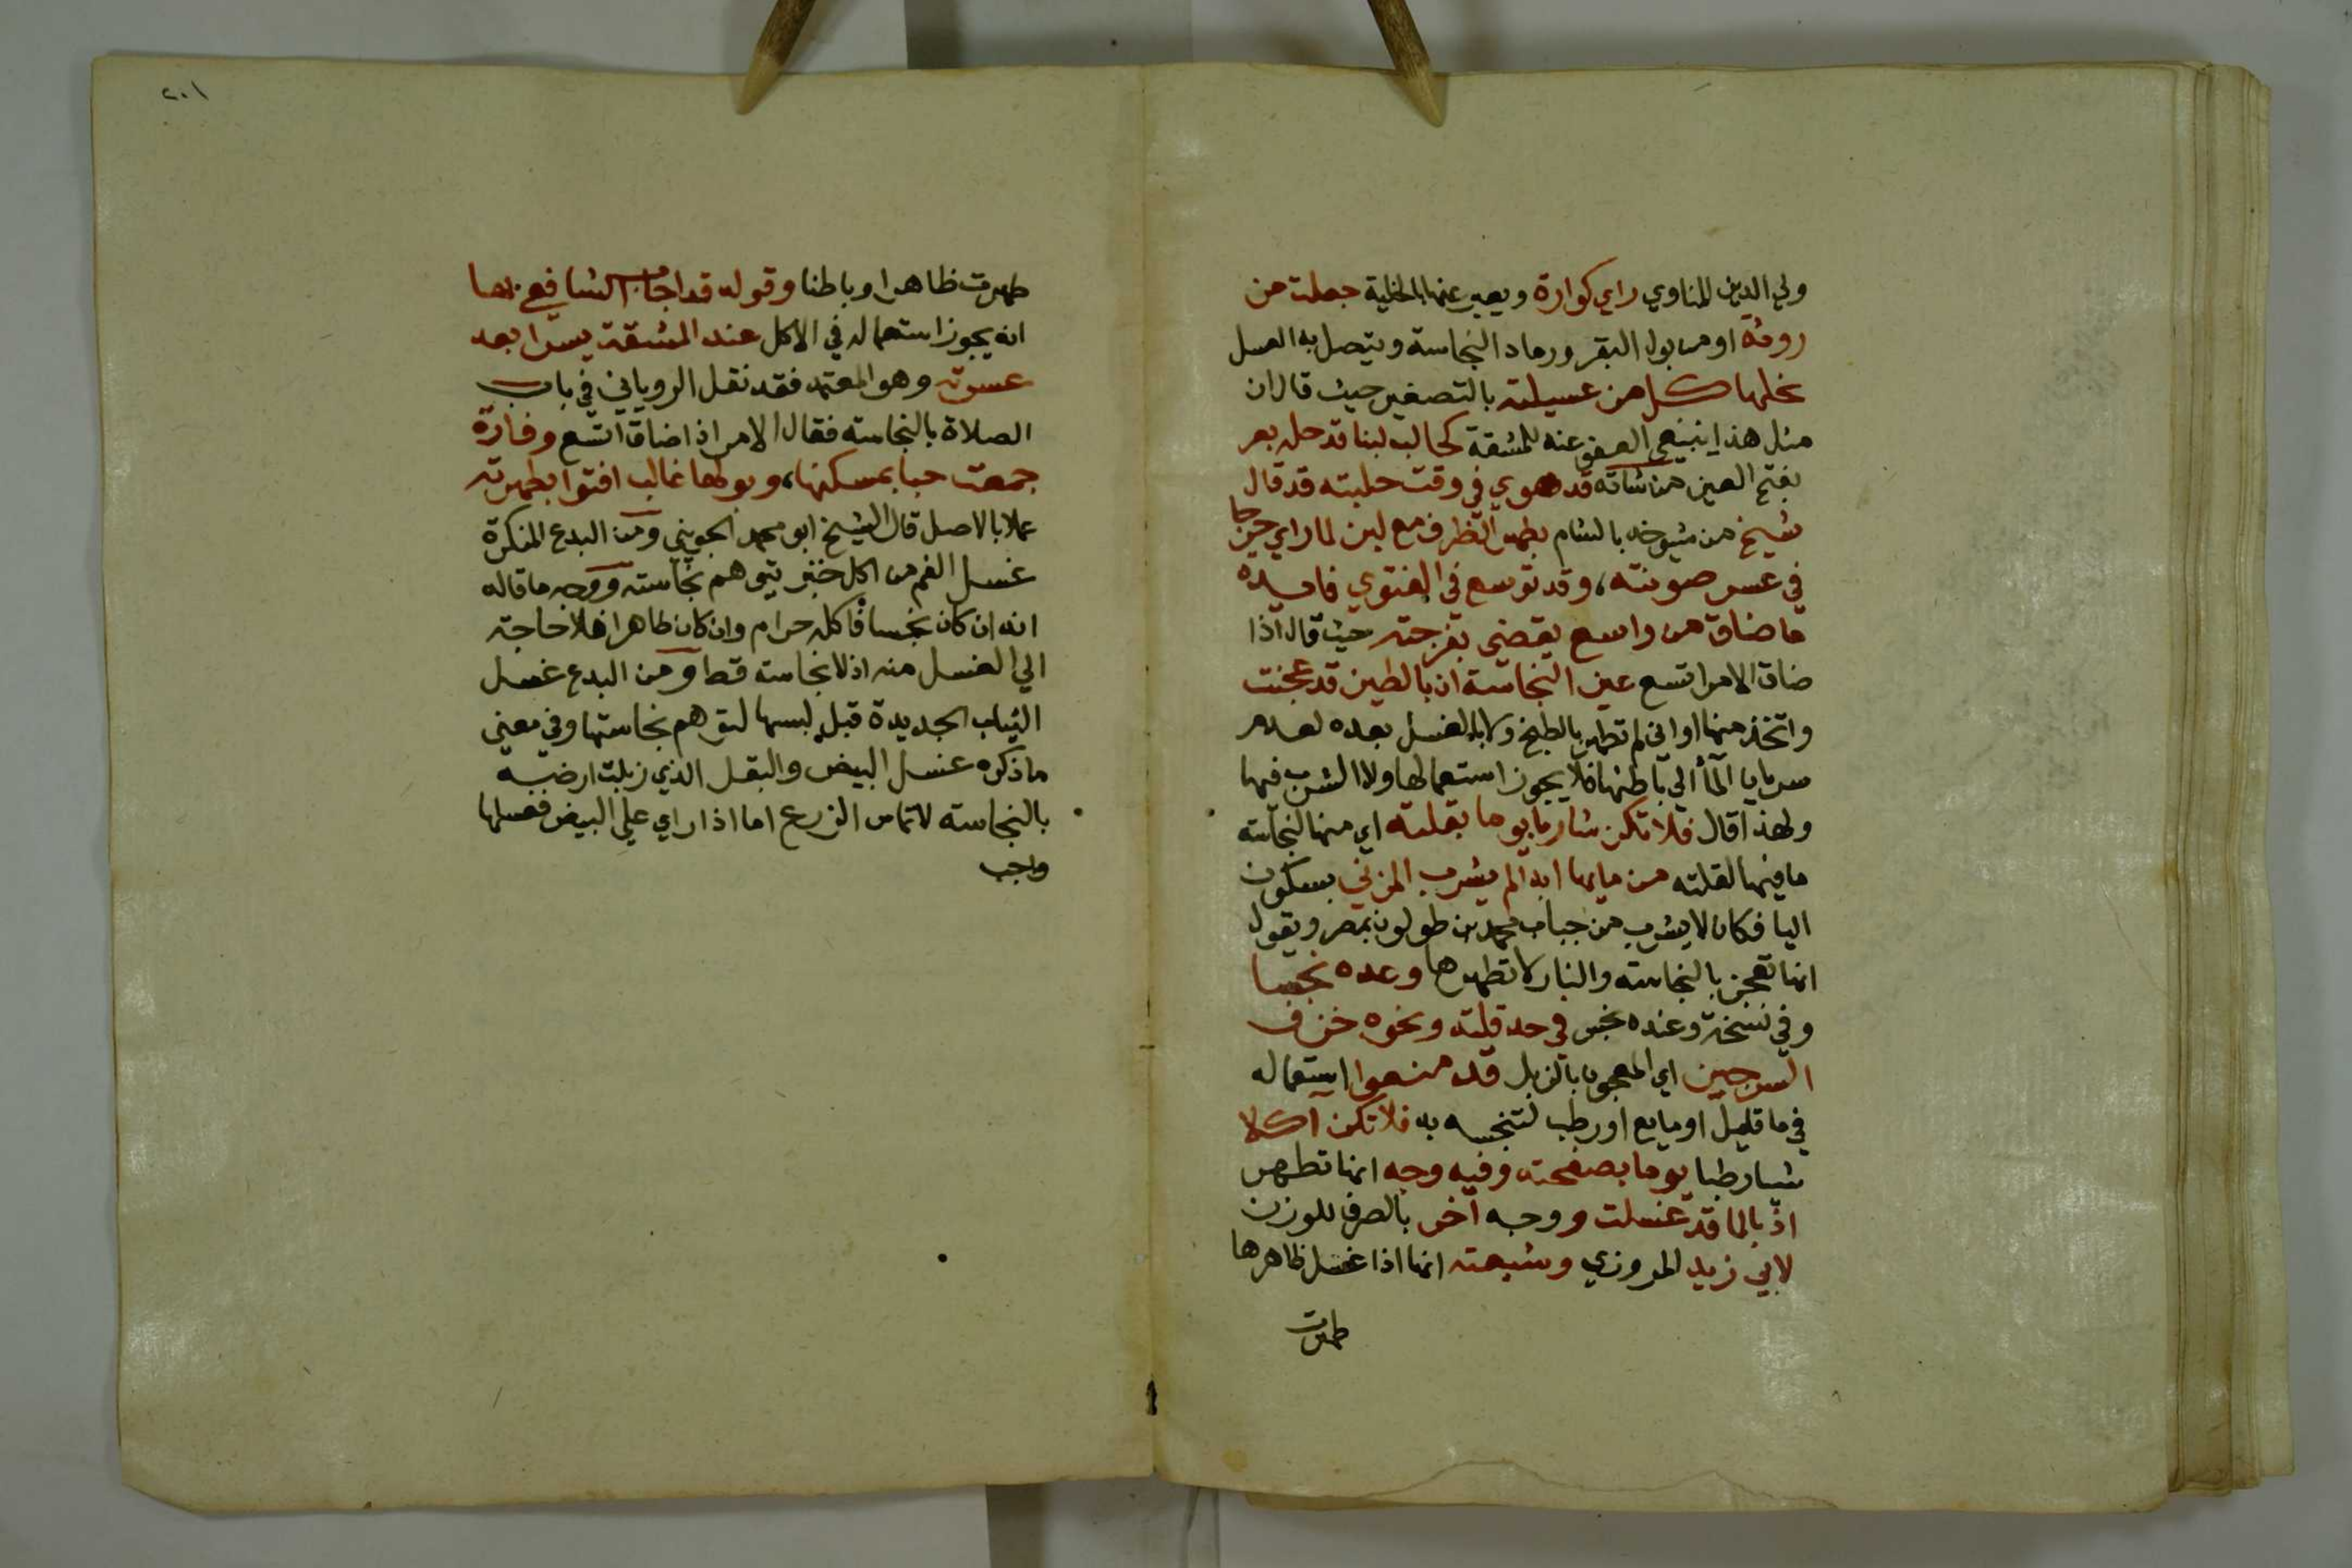 ولي الدين المناوي راي كوارة ويعبر عنها بالخلية جعلت من
روثة او من بول البقر ورماد النجاسة ويتصل به العسل
نحلها كل من عسيلته بالتصغير حيث قال ان
مثل هذا ينبغي العفو عنه للمشقة كحالب لبنا قد حله بعر
بفتح العين من شاته قد هوي في وقت حلبته قد قال
شيخ من شيوخه بالشام بطهر الظرف مع لبن لما راي حرجا
في عسر صونته، وقد توسع في الفتوي فايده
ما ضاق من واسع يقضي بفرجته حيث قال اذا
ضاق الامر اتسع عين النجاسة ان بالطين قد عجنت
واتخذ منها اواني لم تطهر بالطبخ ولا بالغسل بعده لعدم
سريان المآ الي باطنها فلا يجوز استعمالها ولا الشرب فيها
ولهذا قال فلا تكن شاربا يوما بقلته اي منها لنجاسة
ما فيها لقلته من مايها ابدا لم يشرب المزني بسكون
اليا فكان لا يشرب من جباب محمد بن طولون بمصر ويقول
انها تعجن بالنجاسة والنار لا تطهرها وعده نجسا
وفي نسخة وعنده نجس في حد قلته ونحوه خزف
السرجين اي المعجون بالزبل قد منعوا استعماله
في ما قليل او مايع او رطب لتنجسه به فلا تكن اكلا
شيا رطبا يوما بصفحته وفيه وجه انها تطهر
اذ بالما قد غسلت ووجه آخر بالصرف للوزن
لابي زيد المروزي وشيعته انها اذا غسل ظاهرها
طهرت
٢٠١
طهرت ظاهرا وباطنا وقوله قد اجاز الشافعي بها
انه يجوز استعماله في الاكل عند المشقة يسرا بعد
عسرته وهو المعتمد فقد نقل الروياني في باب
الصلاة بالنجاسة فقال الامر اذا ضاق اتسع وفارة
جمعت حبا بمسكنها، وبولها غالب افتوا بطهرته
عملا بالاصل قال الشيخ ابو محمد الجويني ومن البدع المنكرة
غسل الفم من اكل خبز يتوهم نجاسته ووجه ما قاله
انه ان كان نجسا فاكله حرام وان كان طاهرا فلا حاجة
الي الغسل منه اذ لا نجاسة قط ومن البدع غسل
الثياب الجديدة قبل لبسها لتوهم نجاستها وفي معني
ما ذكره غسل البيض والبقل الذي زبلت ارضه
بالنجاسة لا تماس الزرع اما اذا راي علي البيض فغسلها
واجب